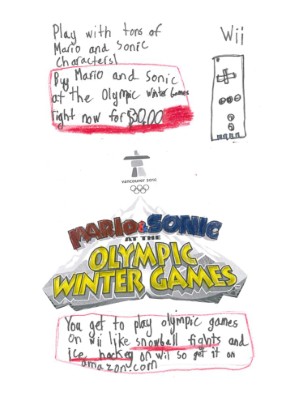 Play with tons of
Mario and Sonic
Characters!
Wii
Buy Mario and Sonic
at the Olympic Winter Games
right now for $90.00
VANCOUVER 2010
MARIO & SONIC
AT THE
OLYMPIC
WINTER GAMES
You get to play olympic games
on wii like snowball fights and
ice hockey on wii so get it on
amazon.com